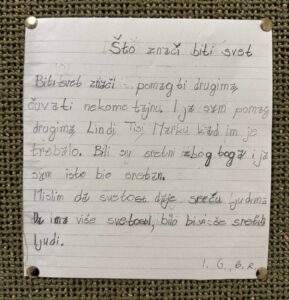 Što znači biti svet
Biti svet znači pomagati drugima,
čuvati nekome tajnu. I ja sam pomag
drugima Lindi Tisi Marku kad im je
trebalo. Bili su sretni zbog toga i ja
sam isto bio sretan.
Mislim da svetost daje sreću ljudima
Da ima više svetosti, bilo bi više sretnih
ljudi.
I. G., 6. r.